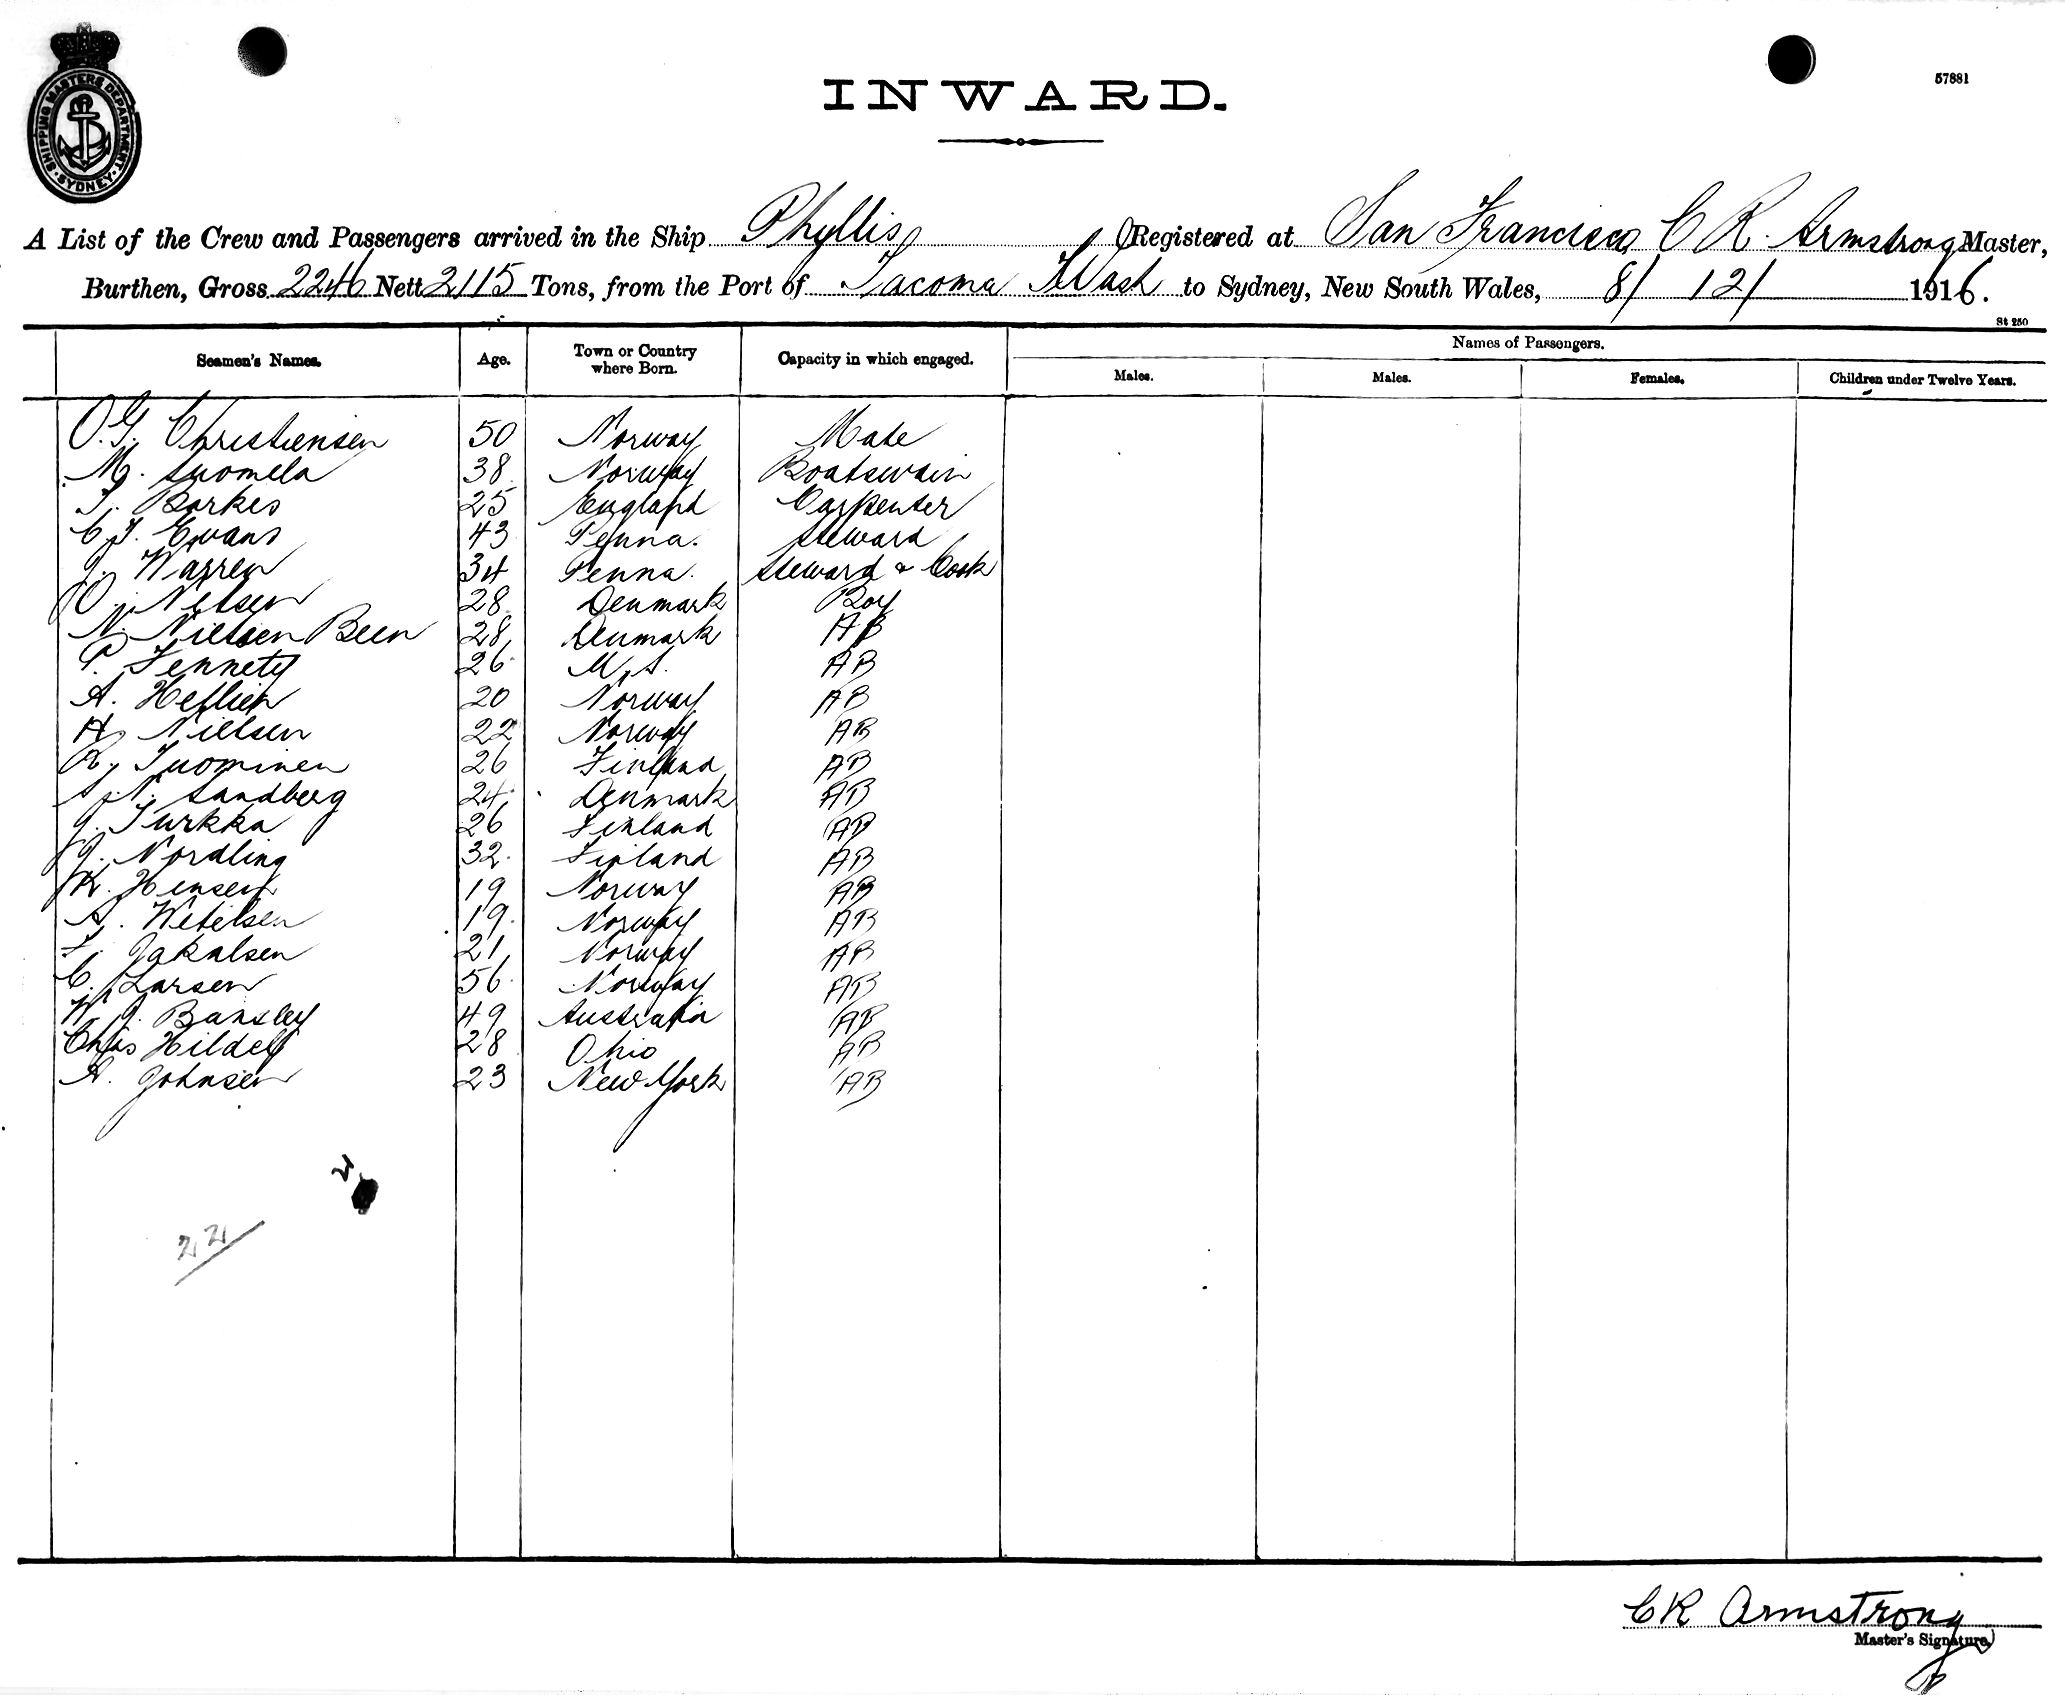 SHIPPING MASTERS DEPARTMENT SYDNEY
57881
INWARD.
A List of the Crew and Passengers arrived in the Ship Phyllis Registered at San Francisco, C R. Armstrong Master,
Burthen, Gross 2246 Nett 2115 Tons, from the Port of Tacoma Wash to Sydney, New South Wales, 8/ 12/ 1916.
St 250
Seamen's Names. Age. Town or Country where Born. Capacity in which engaged. Names of Passengers.
Males. Males. Females. Children under Twelve Years.
O. G. Christiensen 50 Norway Mate
M. Suomela 38 Norway Boatswain
T. Borkes 25 England Carpenter
C. J. Evans 43 Penna. Steward
J. Warren 34 Penna. Steward & Cook
O. Nelsen 28 Denmark Boy
N. Nielsen Been 28 Denmark AB
P. Fennety 26 U.S. AB
A. Heflien 20 Norway AB
H. Nielsen 22 Norway AB
R. Tuominen 26 Finland AB
S. N. Sandberg 24 Denmark AB
J. Turkka 26 Finland AB
J. Nordling 32 Finland AB
K. Hensen 19 Norway AB
A. Wetelsen 19 Norway AB
F. Jakalsen 21 Norway AB
C. Larsen 56 Norway AB
W. J. Bansley 49 Australia AB
Chas Hildey 28 Ohio AB
A. Johnsen 23 New York AB
21
22
CR Armstrong
Master's Signature.